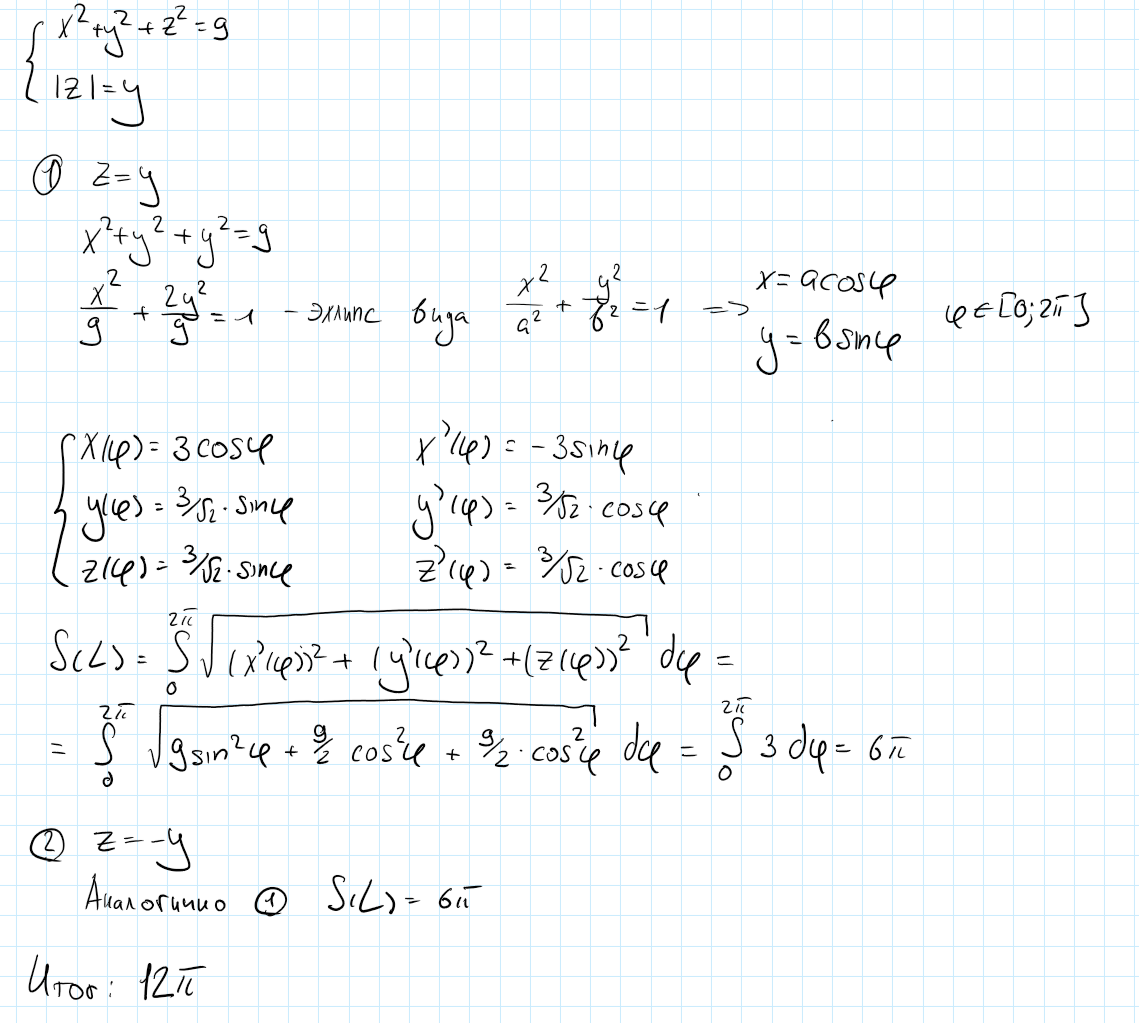 { x² + y² + z² = 9
|z| = y
① z = y
x² + y² + y² = 9
x²/9 + 2y²/9 = 1 - эллипс вида x²/a² + y²/b² = 1 => x = a cosφ y = b sinφ φ ∈ [0; 2π]
{ x(φ) = 3 cosφ x'(φ) = -3 sinφ
y(φ) = 3/√2 · sinφ y'(φ) = 3/√2 · cosφ
z(φ) = 3/√2 · sinφ z'(φ) = 3/√2 · cosφ
S(L) = ∫₀^2π √((x'(φ))² + (y'(φ))² + (z(φ))²) dφ =
= ∫₀^2π √(9 sin²φ + 9/2 cos²φ + 9/2 · cos²φ) dφ = ∫₀^2π 3 dφ = 6π
② z = -y
Аналогично ① S(L) = 6π
Итог: 12π